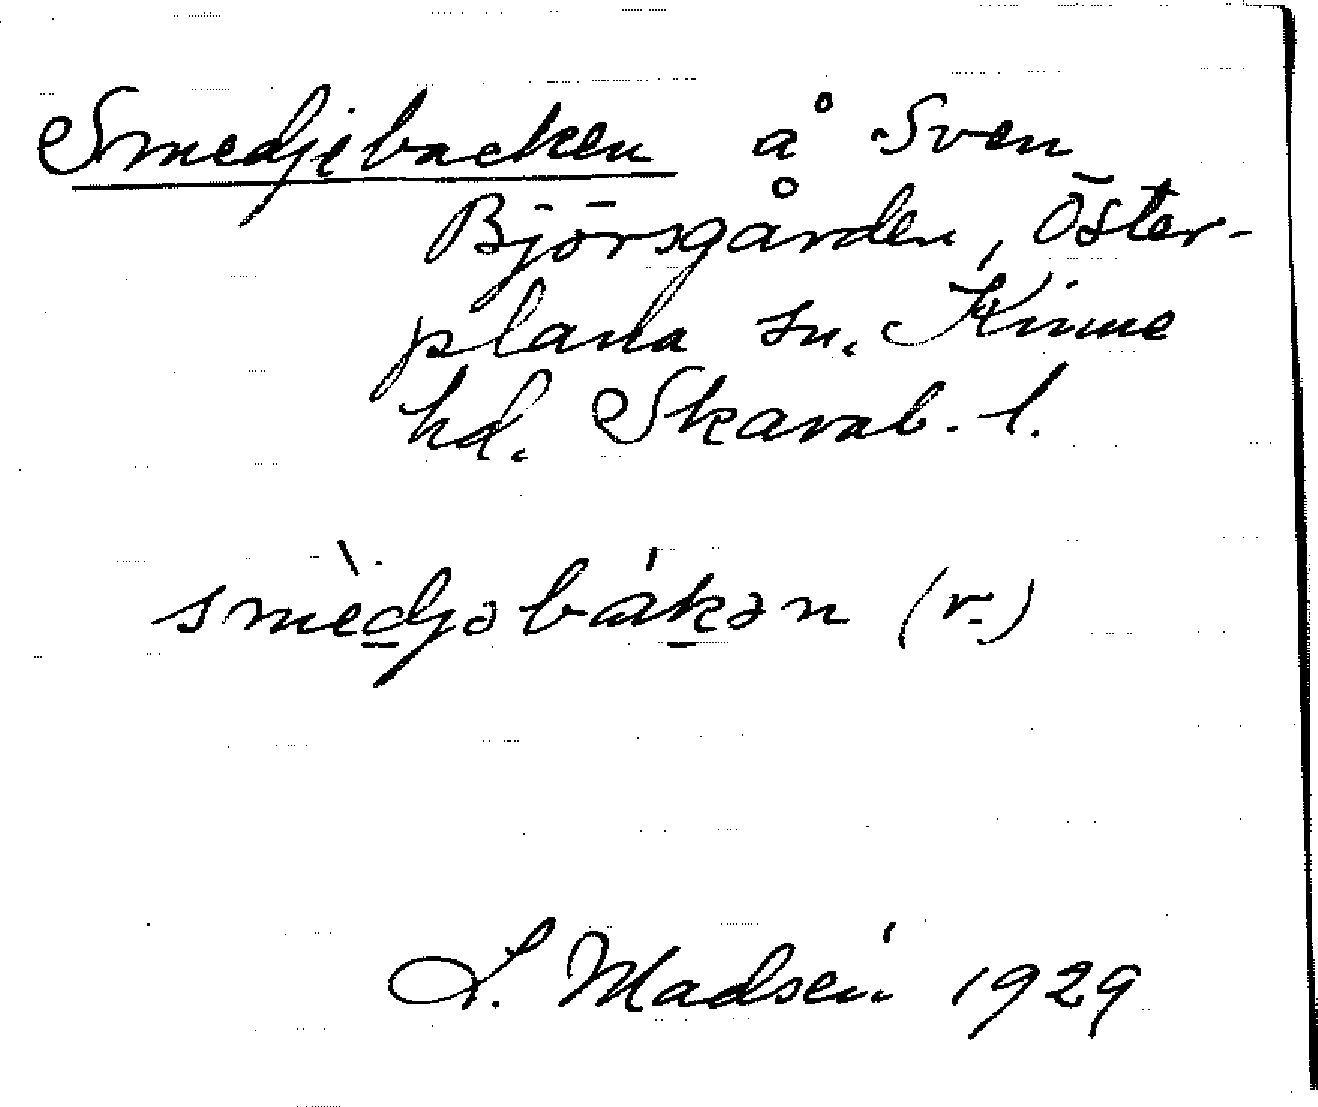 Smedjebacken å Sven
Björsgården, Öster-
plana sn. Kinne
hd. Skarab. l.
smèdjəbákən (r.)
L. Madsén 1929